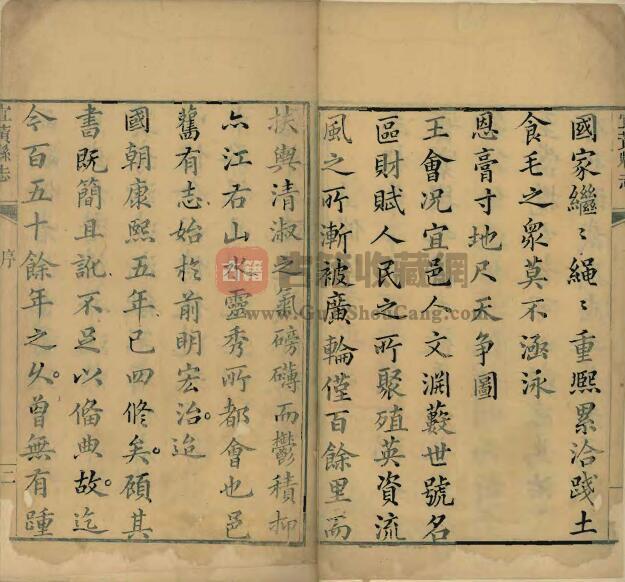 國家繼〻繩〻重熙累洽踐土
食毛之衆莫不涵泳
恩膏寸地尺天爭圖
王會况宜邑人文淵藪世號名
區財賦人民之所聚殖英資流
風之所漸被廣輪僅百餘里而
扶輿清淑之氣磅礴而鬱積抑
亦江右山水靈秀所都會也邑
舊有志始於前明宏治。迨
國朝康熙五年已四修矣。顧其
書既簡且訛不足以僃典故。迄
今百五十餘年之久。曾無有踵
宜黄縣志
序
古籍收藏網
www.GuJiShouCang.com
古籍